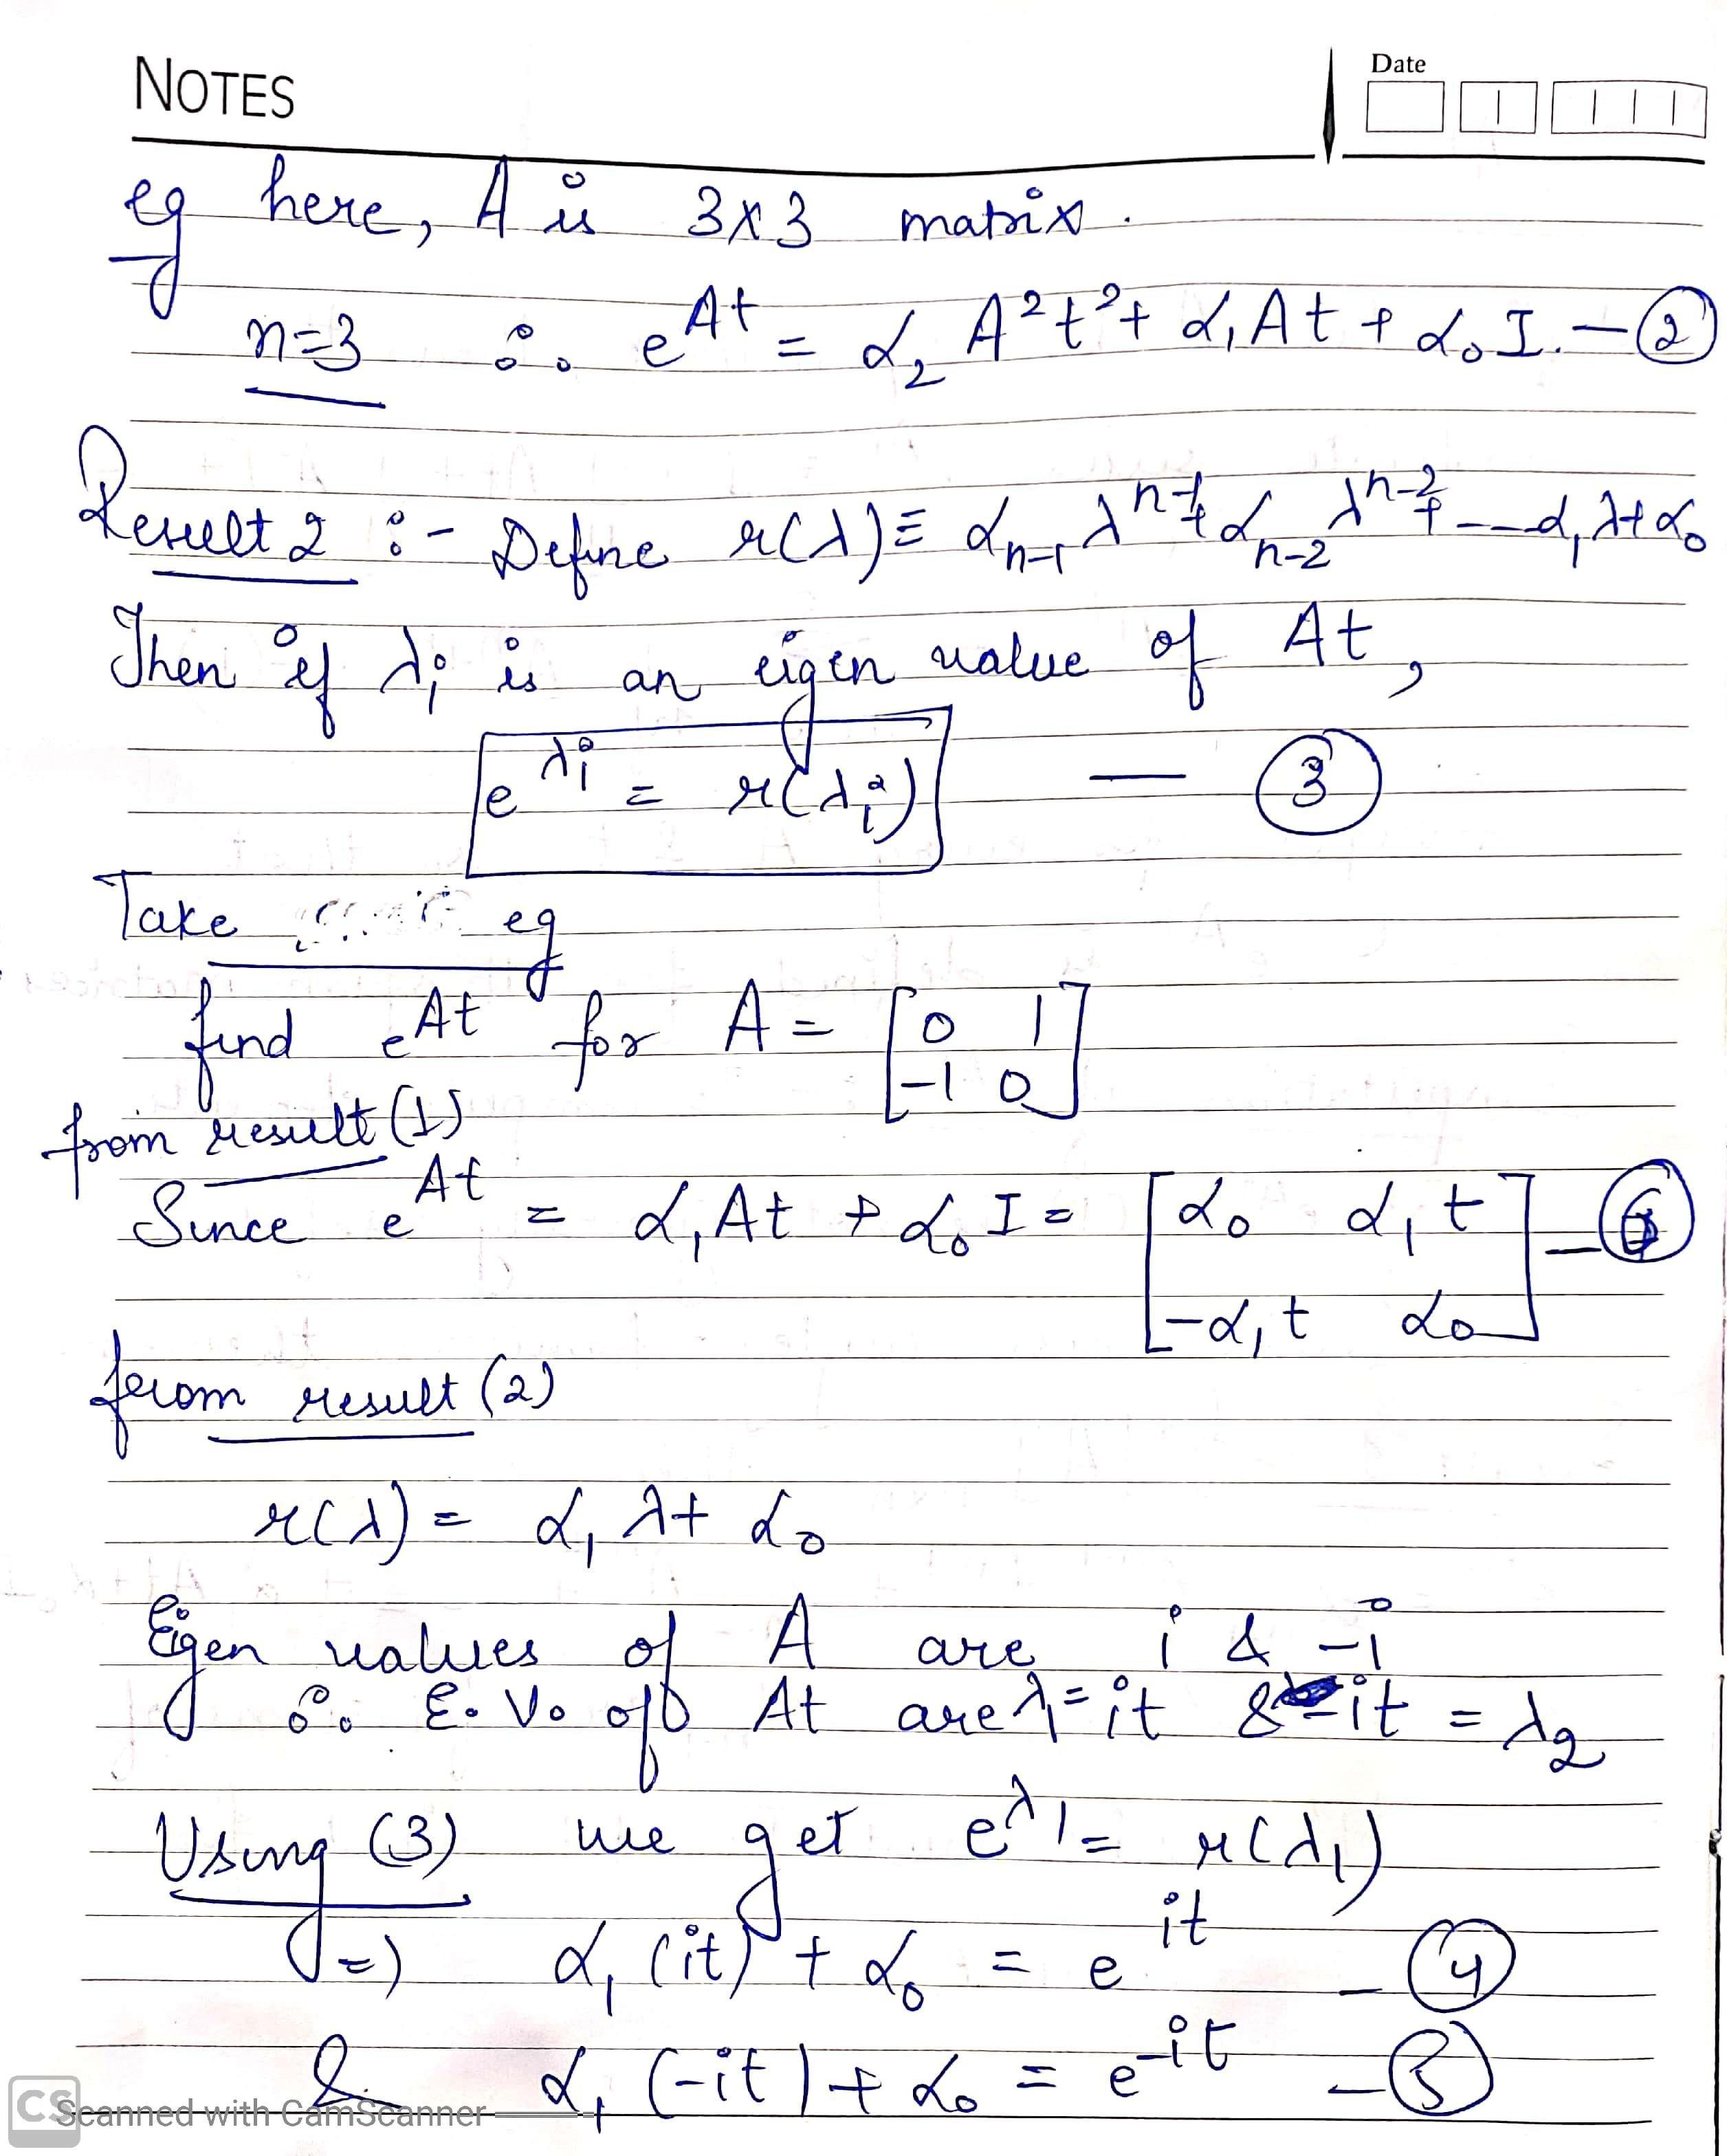 NOTES
Date
eg here, A is 3x3 matrix.
n=3 ∴ e^At = α₂ A²t² + α₁At + α₀I. — ②
Result 2 :- Define r(λ) ≡ αₙ₋₁ λ^(n-1) + αₙ₋₂ λ^(n-2) + --- α₁λ + α₀
Then if λᵢ is an eigen value of At,
e^λᵢ = r(λᵢ) — ③
Take eg
find e^At for A = [0 1
-1 0]
from result (1)
Since e^At = α₁At + α₀I = [α₀ α₁t
-α₁t α₀] — ⑥
from result (2)
r(λ) = α₁λ + α₀
Eigen values of A are i & -i
∴ E. V. of At are λ₁ = it & -it = λ₂
Using (3) we get e^λ₁ = r(λ₁)
=) α₁(it) + α₀ = e^it — ④
& α₁(-it) + α₀ = e^-it — ⑤
CS Scanned with CamScanner